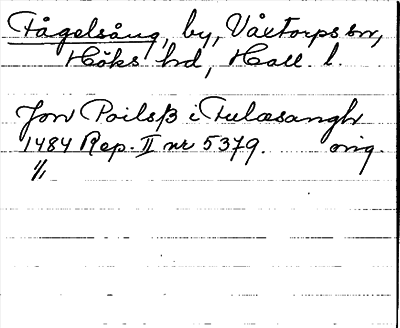 Fågelsång, by, Våxtorps sn,
Höks hd, Hall. l.
Jon Poilsß i Fulæsangh
1484 Rep. II nr 5379. orig.